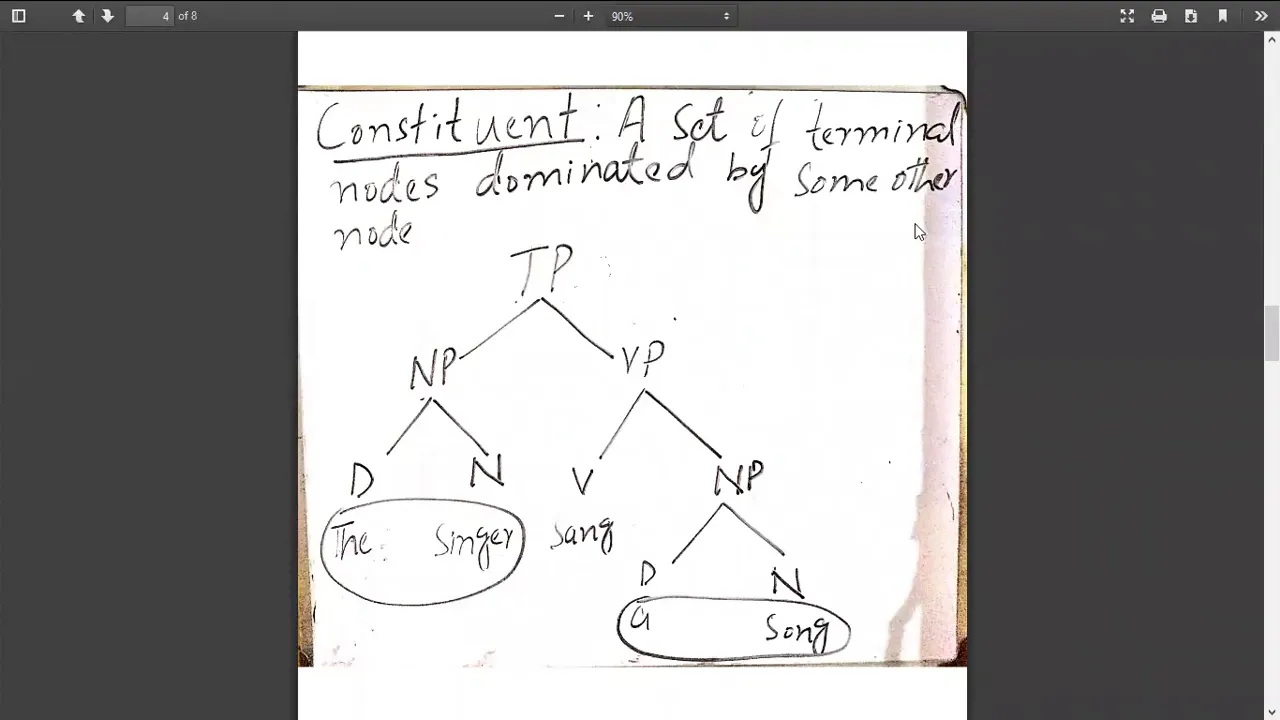 4 of 8
90%
Constituent: A set of terminal
nodes dominated by some other
node
TP
NP VP
D N V NP
The Singer sang
D N
a Song